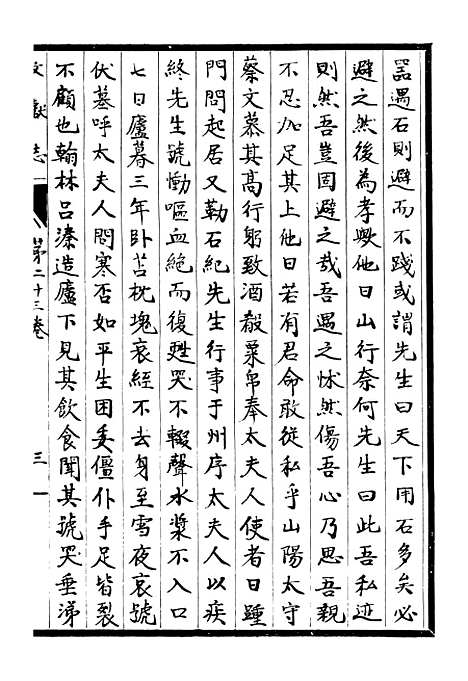 器遇石則避而不踐或謂先生曰天下用石多矣必
避之然後為孝歟他日山行奈何先生曰此吾私迹
則然吾豈固避之哉吾遇之怵然傷吾心乃思吾親
不忍加足其上他日若有君命敢從私乎山陽太守
蔡文慕其高行躬致酒殽粟帛奉太夫人使者日踵
門問起居又勒石紀先生行事于州序太夫人以疾
終先生號慟嘔血絕而復甦哭不輟聲水漿不入口
七日廬墓三年卧苫枕塊衰絰不去身至雪夜哀號
伏墓呼太夫人問寒否如平生困委僵仆手足皆裂
不顧也翰林呂溱造廬下見其飲食聞其號哭垂涕
文獻志
第二十三卷
三一